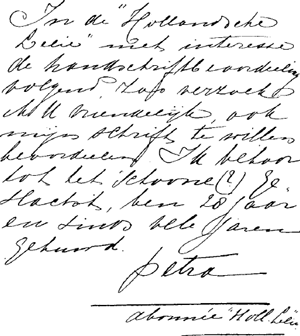 In de "Hollandsche
Lelie" met interesse
de handschriftbeoordeeling
volgend, zoo verzoek
ik U vriendelijk, ook
mijn schrift te willen
beoordeelen. Ik behoor
tot het "schoone (?) Ge-
slacht, ben 28 jaar
en sinds vele jaren
gehuwd.
Petra
abonnée "Holl. Lelie.